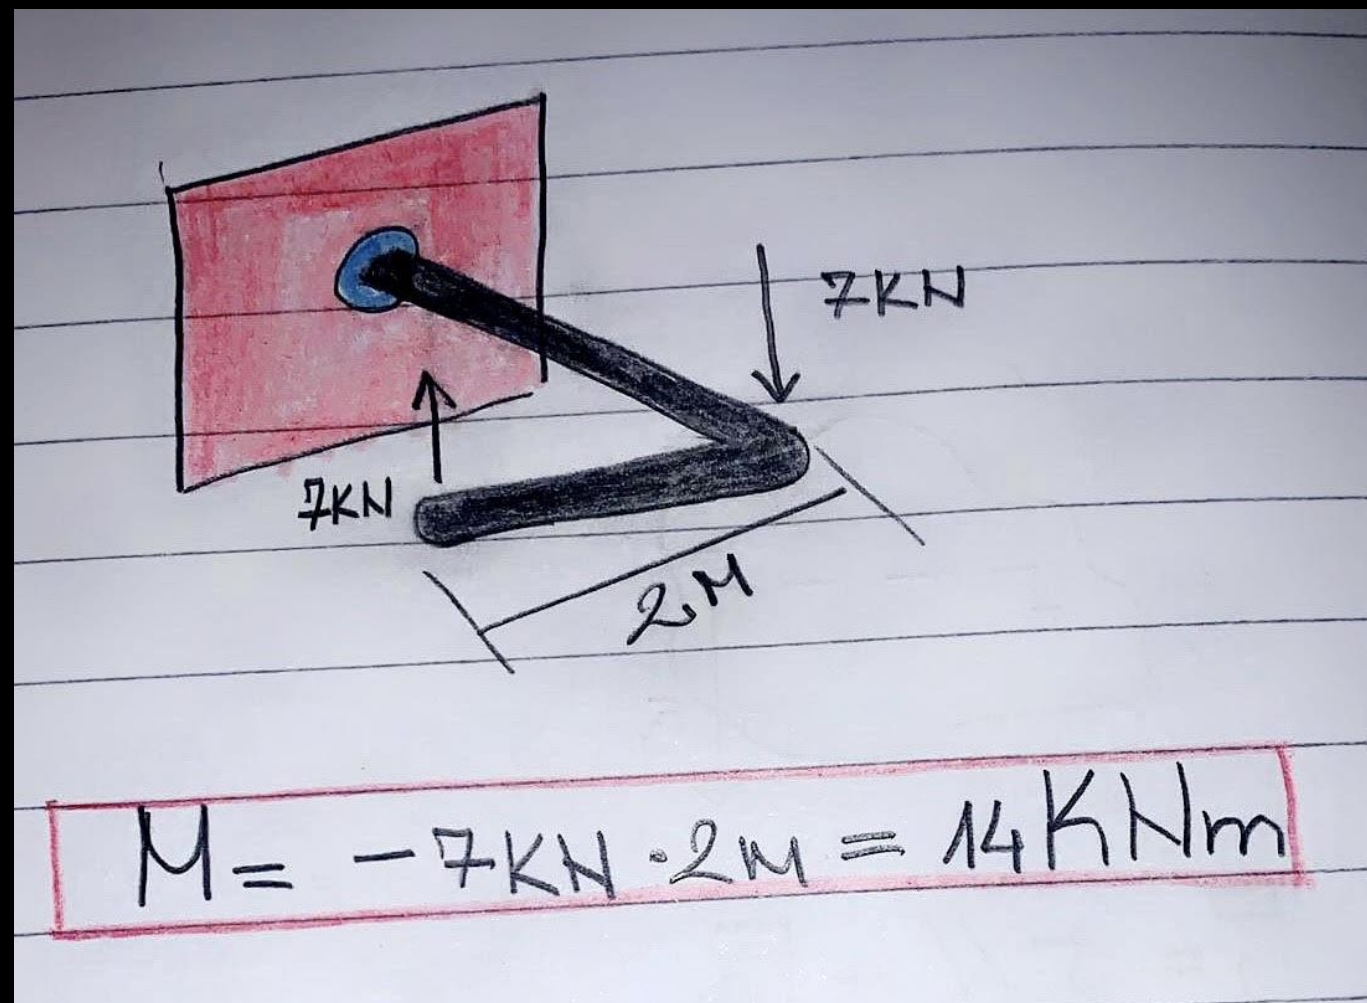 7KN
7KN
2M
M = -7KN · 2M = 14KNm